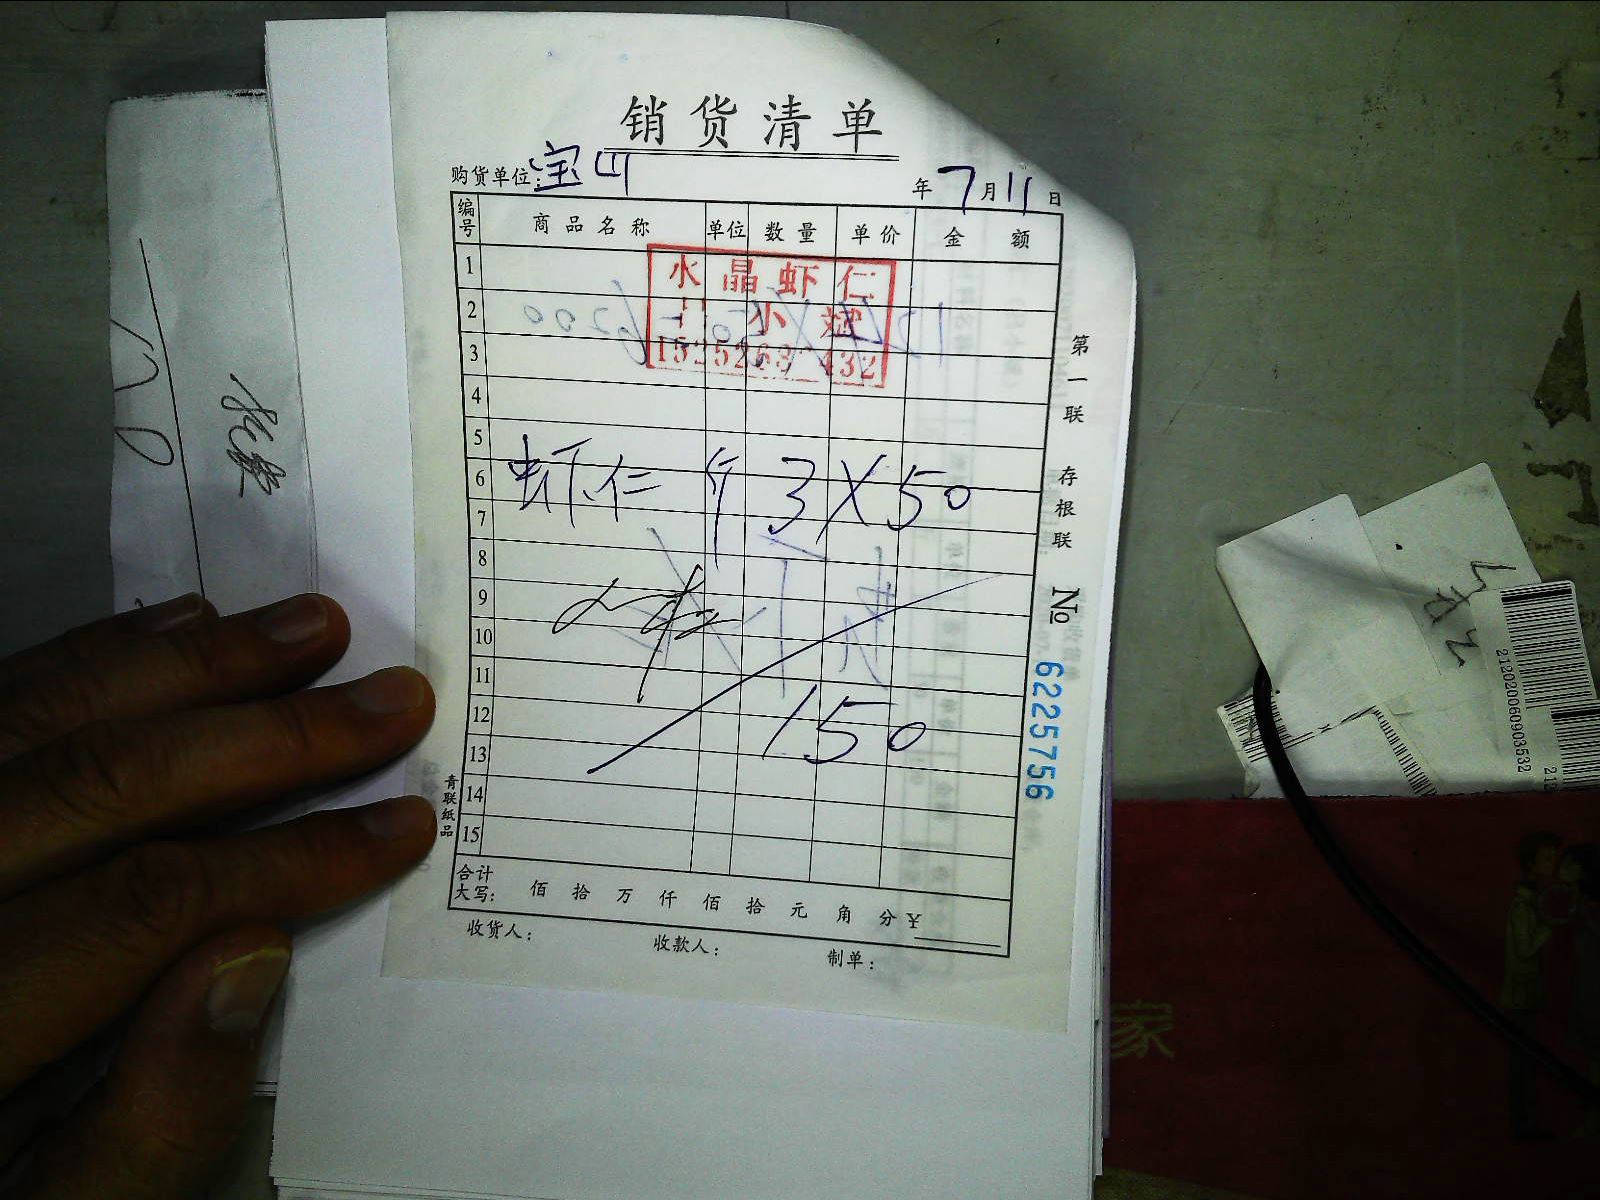 销货清单
购货单位：宝四
年7月11日
编号 商品名称 单位 数量 单价 金额
1
水晶虾仁
2
小斌
3
4
5
6 虾仁 斤 3×50
7
8
9
10
11
12 150
13
14
15
合计大写： 佰 拾 万 仟 佰 拾 元 角 分 ¥
收货人： 收款人： 制单：
第一联 存根联
No 62257756
青联纸品
2120206090353​2
家